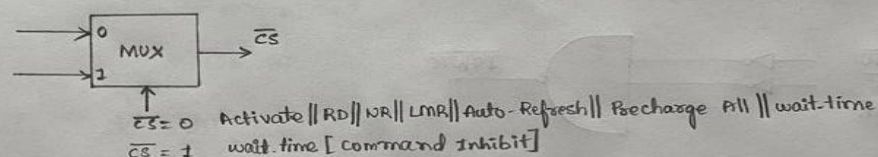 0
MUX
C̅S̅
1
C̅S̅ = 0 Activate || RD || WR || LMR || Auto-Refresh || Precharge All || wait-time
C̅S̅ = 1 wait.time [ Command Inhibit ]